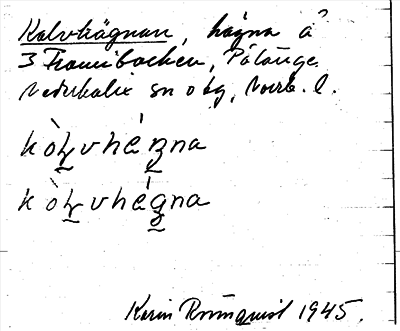 Kalvhägnan, hägna å
3 Frammibacken, Pålänge
Nederkalix sn o kg, Norrb. l.
kòl̠vhéŋna
kòl̠vhégna
Karin Rönnqvist 1945.